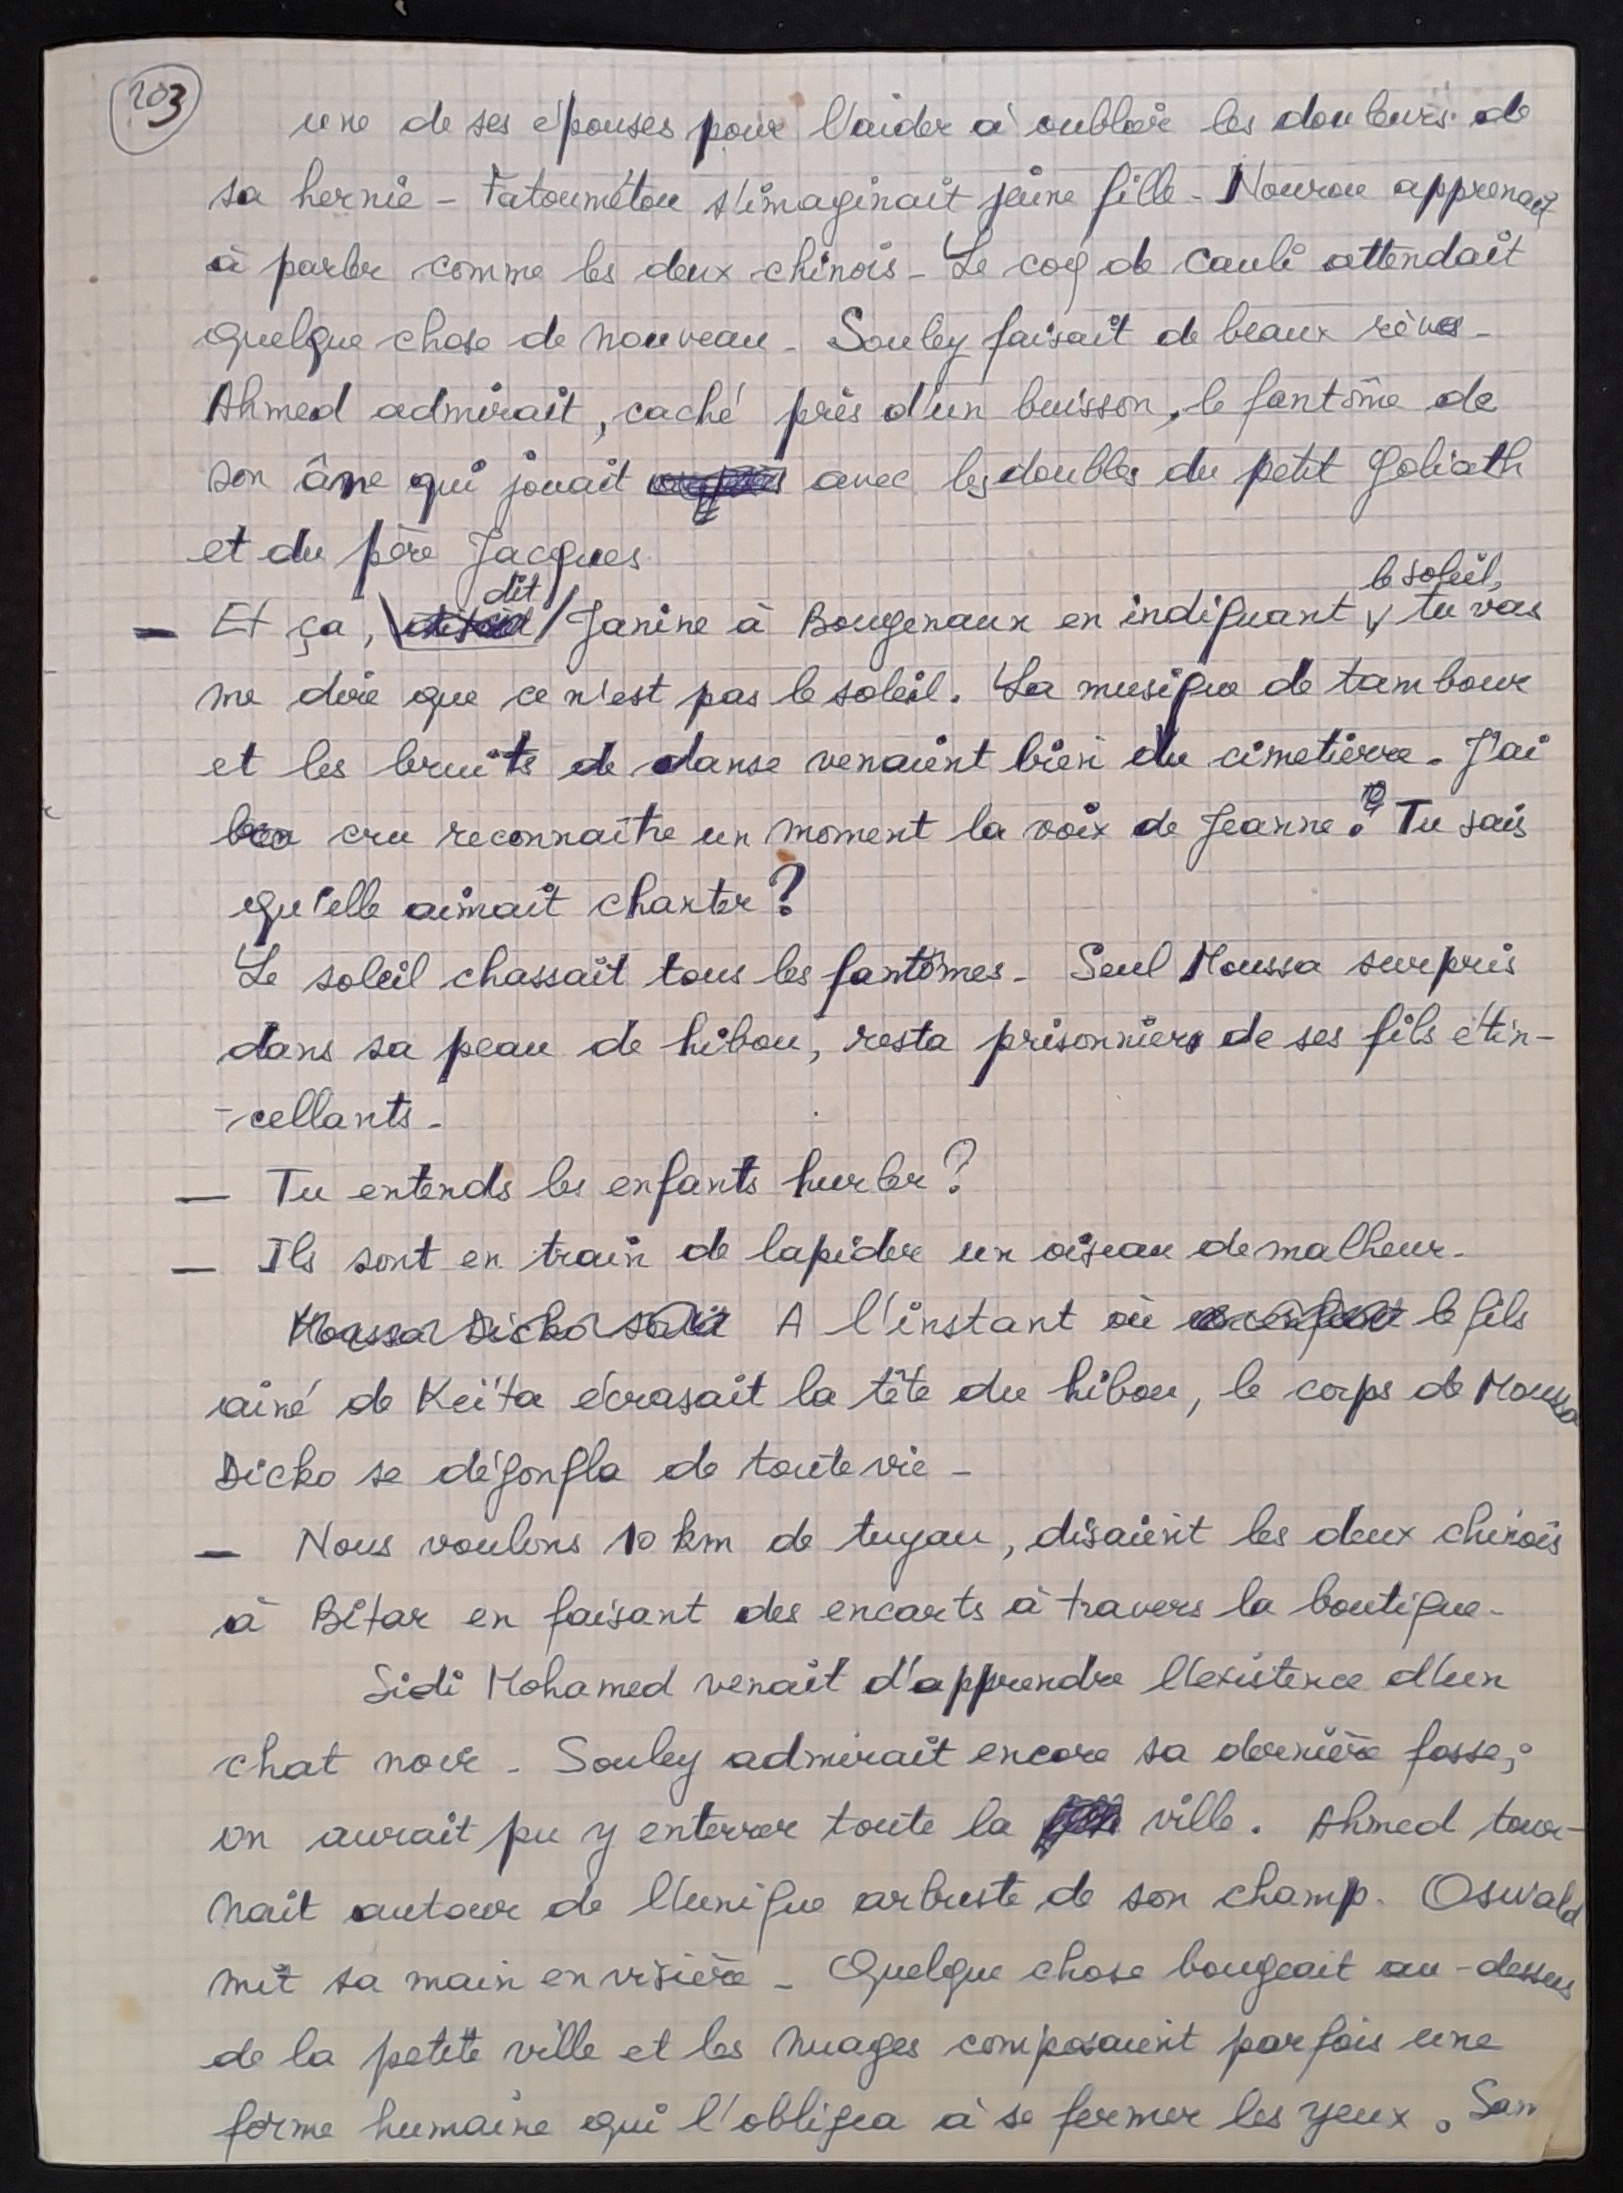 203
une de ses épouses pour l'aider à oublier les douleurs de
sa hernie - Fatoumétou s'imaginait jeune fille - Nourou apprenait
à parler comme les deux chinois - Le coq de Cauli attendait
quelque chose de nouveau - Souley faisait de beaux rêves -
Ahmed admirait, caché près d'un buisson, le fantôme de
son âne qui jouait avec les doubles du petit Goliath
et du père Jacques
- Et ça, dit Janine à Bougenaux en indiquant le soleil, tu vas
me dire que ce n'est pas le soleil. La musique de tambour
et les bruits de danse venaient bien du cimetierre. J'ai
bien cru reconnaître un moment la voix de Jeanne. Tu sais
qu'elle aimait chanter ?
Le soleil chassait tous les fantômes - Seul Moussa surpris
dans sa peau de hibou, resta prisonnier de ses fils étin-
-cellants -
- Tu entends les enfants hurler ?
- Ils sont en train de lapider un oiseau de malheur -
A l'instant où le fils
ainé de Keïta écrasait la tête du hibou, le corps de Moussa
Dicko se dégonfla de toute vie -
- Nous voulons 10 km de tuyau, disaient les deux chinois
à Bitar en faisant des encarts à travers la boutique -
Sidi Mohamed venait d'apprendre l'existence d'un
chat noir - Souley admirait encore sa dernière fosse ;
on aurait pu y enterrer toute la ville. Ahmed tour-
nait autour de l'unique arbuste de son champ. Oswald
mit sa main en visière - Quelque chose bougeait au-dessus
de la petite ville et les nuages composaient parfois une
forme humaine qui l'obligea à se fermer les yeux. Sam